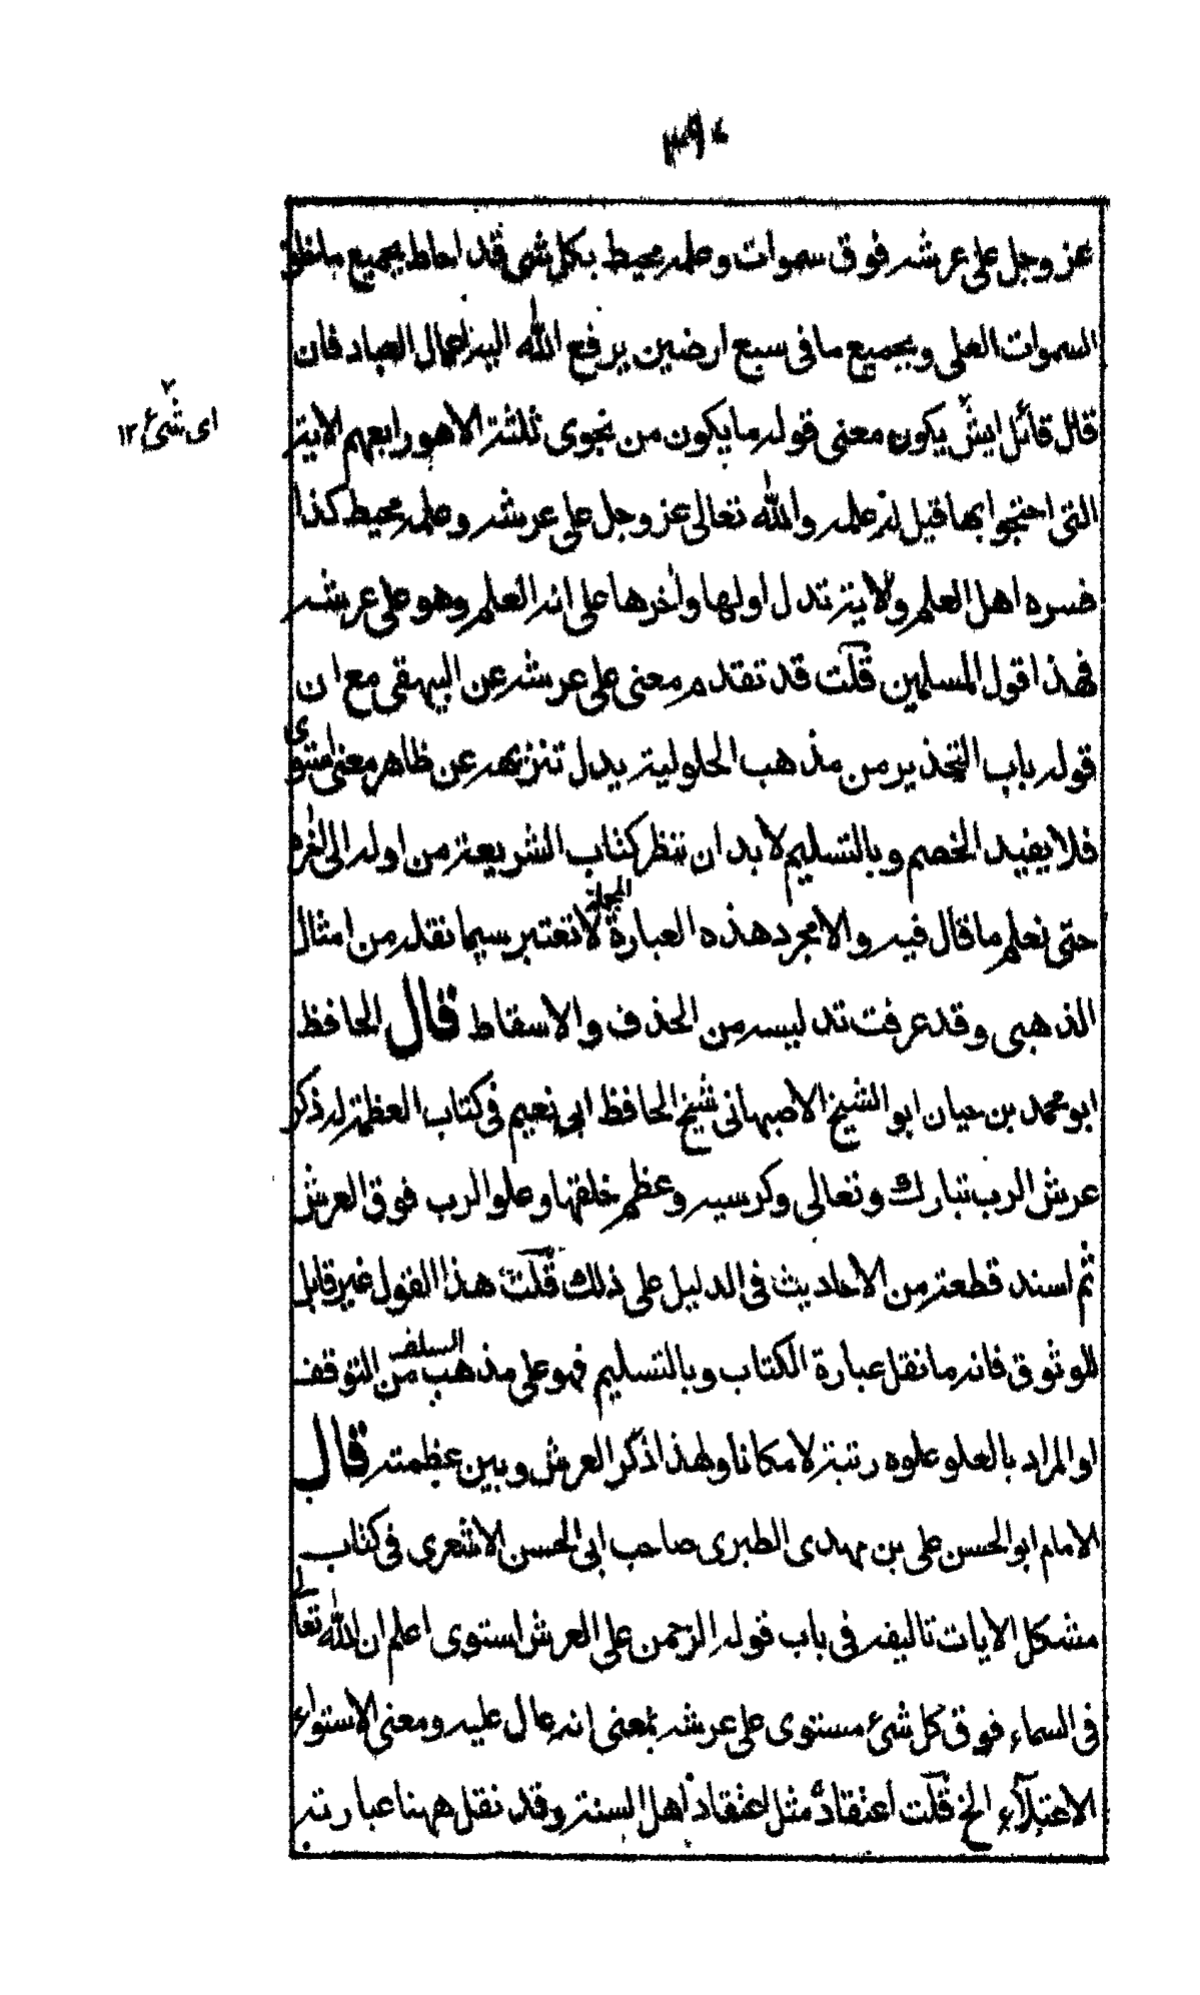 ٣٩٠
عز وجل على عرشه فوق سموات وعلمه محيط بكل شى قد احاط بجميع ما خلق
السموات العلى وبجميع ما فى سبع ارضين يرفع الله اليه اعمال العباد فان
قال قائل ايش يكون معنى قوله ما يكون من نجوى ثلثة الا هو رابعهم الاية
التى احتجوا بها قيل له علمه والله تعالى عز وجل على عرشه وعلمه محيط كذا
فسره اهل العلم والاية تدل اولها واخرها على انه العلم وهو على عرشه
فهذا قول المسلمين قلت قد تقدم معنى على عرشه عن البيهقى مع ان
قوله باب التحذير من مذهب الحلولية يدل تنزيهه عن ظاهر معنى استوى
فلا يفيد الخصم وبالتسليم لا بد ان ننظر كتاب الشريعة من اوله الى اخره
حتى نعلم ما قال فيه والا مجرد هذه العبارة المجملة لا تعتبر سيما نقله من امثال
الذهبى وقد عرفت تدليسه من الحذف والاسقاط قال الحافظ
ابو محمد بن حيان ابو الشيخ الاصبهانى شيخ الحافظ ابى نعيم فى كتاب العظمة له ذكر
عرش الرب تبارك وتعالى وكرسيه وعظم خلقها وعلو الرب فوق العرش
ثم اسند قطعة من الاحاديث فى الدليل على ذلك قلت هذا القول غير قابل
للوثوق فانه ما نقل عبارة الكتاب وبالتسليم فهو على مذهب السلف من التوقف
او المراد بالعلو علوه رتبة لا مكانا ولهذا ذكر العرش وبين عظمته قال
الامام ابو الحسن على بن مهدى الطبرى صاحب ابى الحسن الاشعرى فى كتاب
مشكل الايات تاليفه فى باب قوله الرحمن على العرش استوى اعلم ان الله تعالى
فى السماء فوق كل شئ مستوى على عرشه بمعنى انه عال عليه ومعنى الاستواء
الاعتلاء الخ قلت اعتقاده مثل اعتقاد اهل السنة وقد نقل ههنا عبارته
٢ اى شئ ١٢